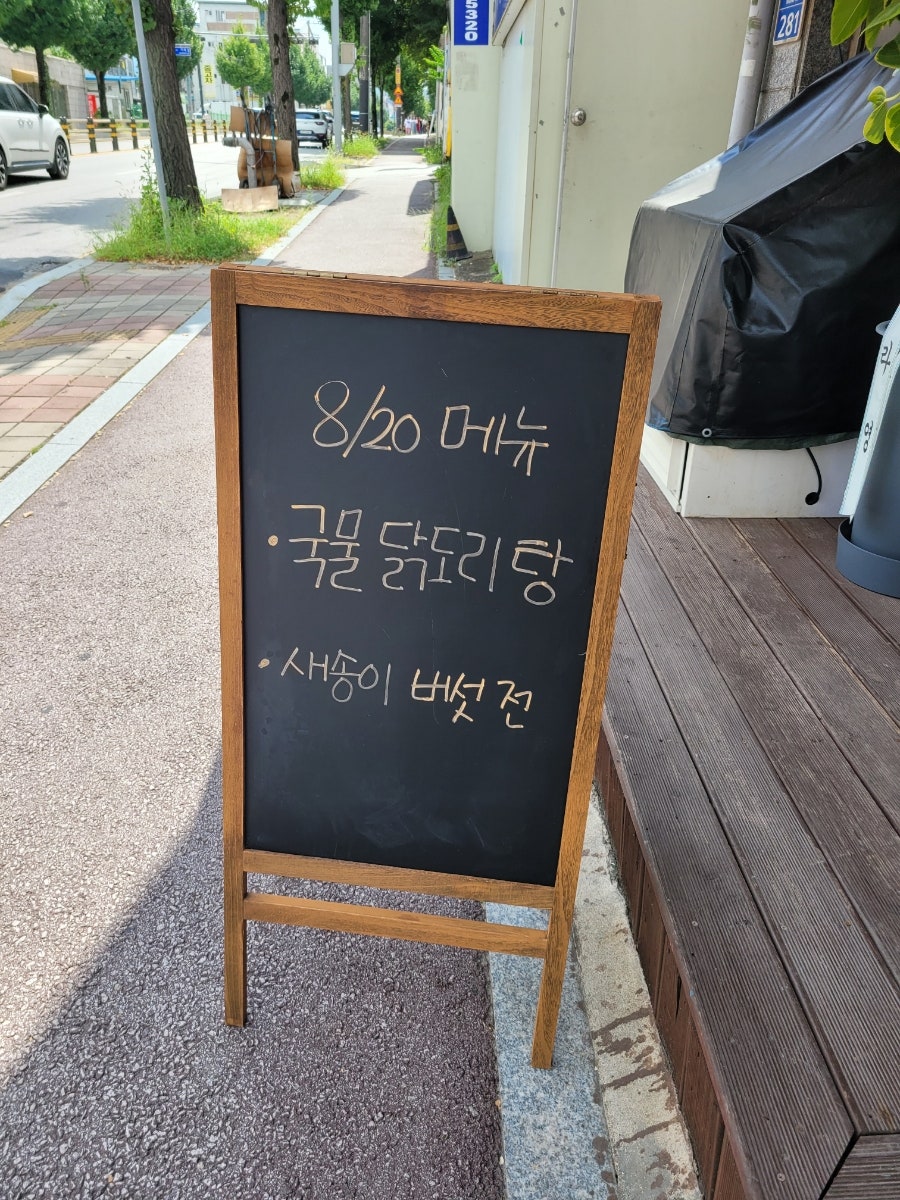 5320
281
8/20 메뉴
• 국물 닭도리탕
• 새송이 버섯전